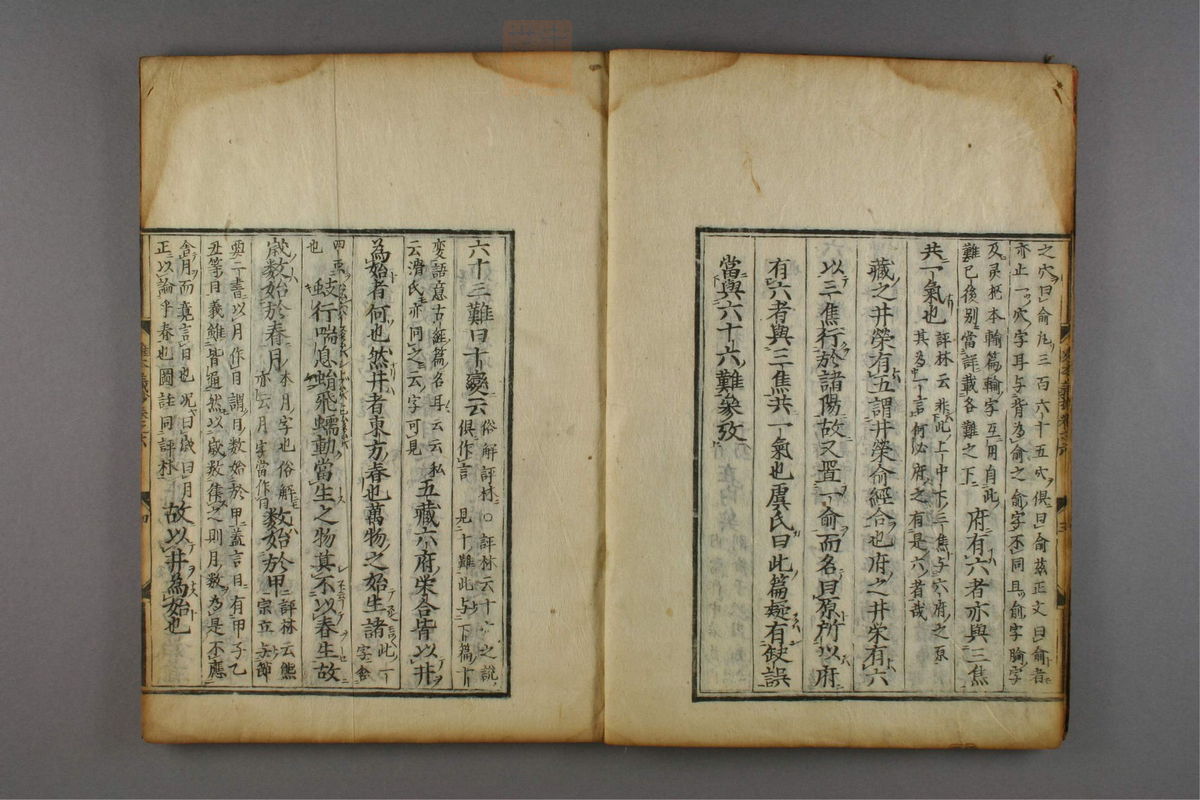 之穴曰俞凡三百六十五穴俱曰俞茲正文曰俞者
亦止一穴字耳与背為俞之俞字不同且俞字腧字
及灵枢本輸篇輸字互用自此
難已後別當詳載各難之下
府有六者亦與三焦
共一氣也
評林云非此上中下三焦与六府之原
其為一言何必府之有是六者哉
藏之井榮有五謂井榮俞經合也府之井榮有六
以三焦行於諸陽故又置一俞而名曰原所以府
有六者與三焦共一氣也虞氏曰此篇疑有缺誤
當與六十六難參攷
六十三難曰十變云
俗解評林
俱作言
○評林云十之說
見十難此与下篇十
變語意古經篇名耳云云私
云滑氏亦同之云字可見
五藏六府榮合皆以井
為始者何也然井者東方春也萬物之始生諸
此下
字舍
四原
也
蚑行喘息蜎飛蠕動當生之物其不以春生故
歲數始於春月
本月字也俗解
亦云月字當作日
數始於甲
評林云熊
宗立与節
要二書以月作日謂日數始於甲蓋言日有甲子乙
丑等日義雖皆通然以歲数律之則月数為是不應
舍月而竟言日也况曰歲曰月
正以論乎春也圖註同評林
故以井為始也
四